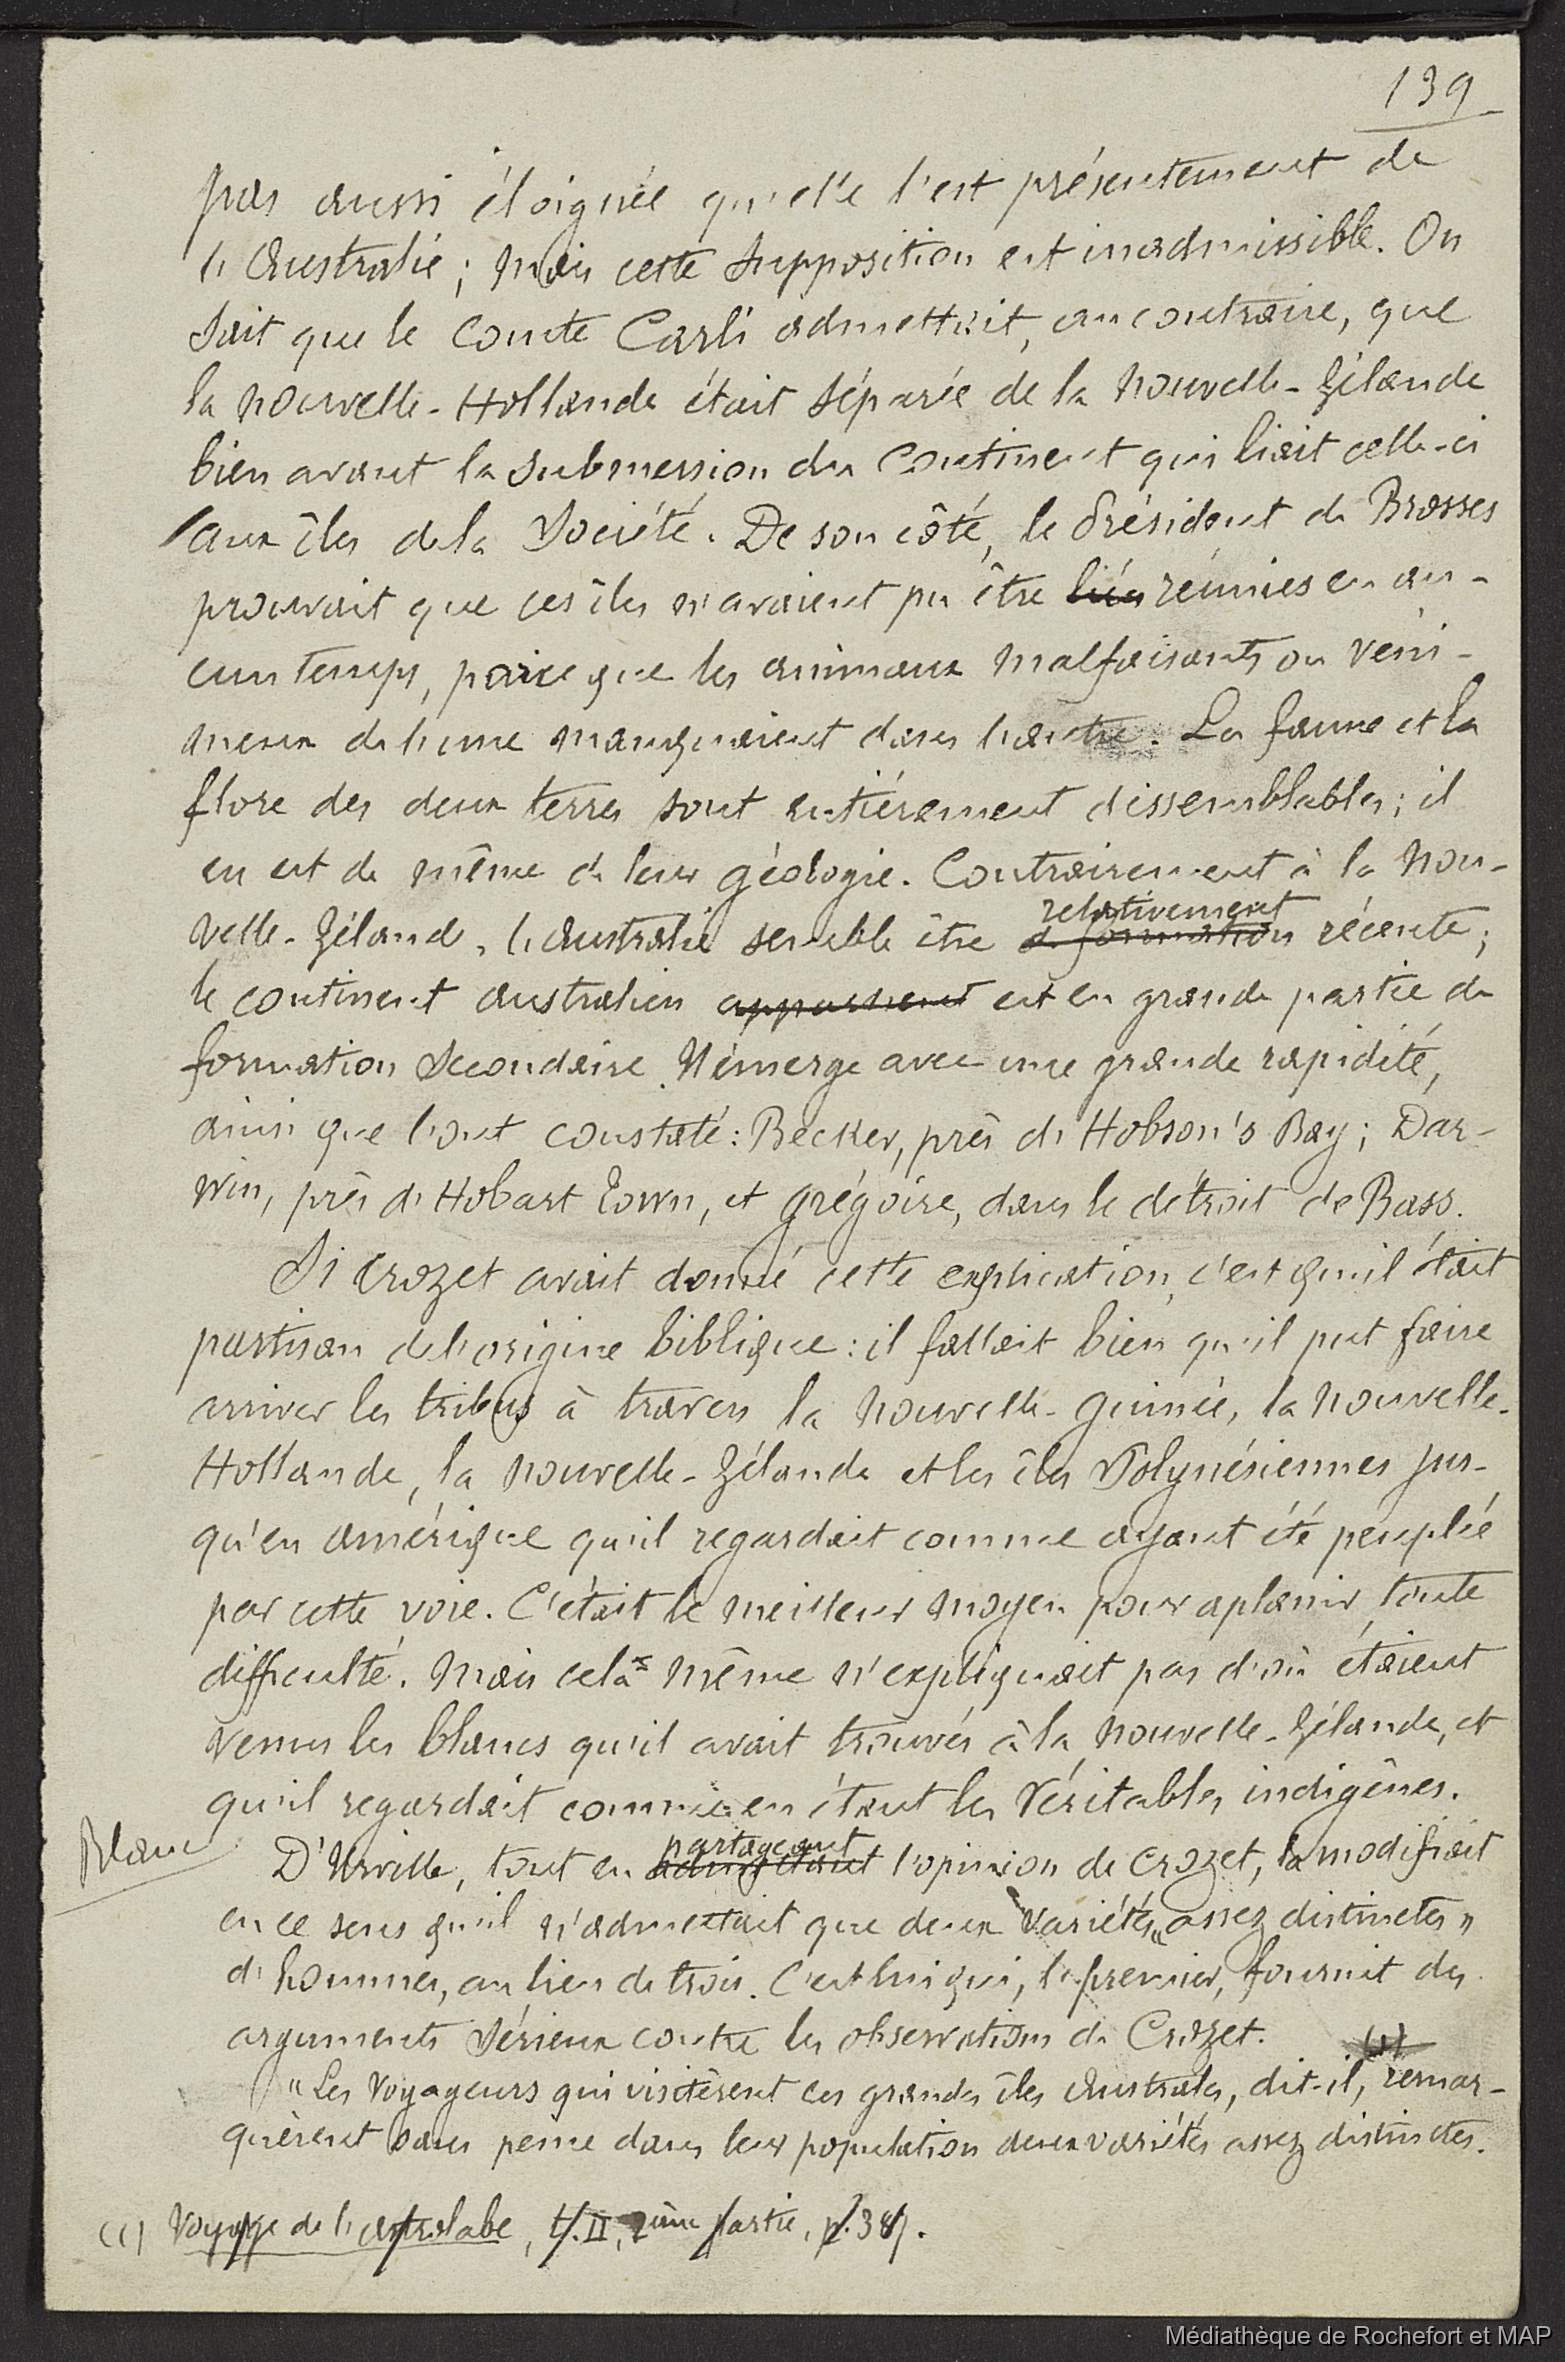 139
pas aussi éloignée qu'elle l'est présentement de
l'Australie ; mais cette supposition est inadmissible. On
sait que le Comte Carli admettait, au contraire, que
la Nouvelle-Hollande était séparée de la Nouvelle-Zélande
bien avant la submersion du Continent qui liait celle-ci
aux îles de la Société. De son côté, le Président de Brosses
prouvait que ces îles n'avaient pu être liées réunies en au-
cun temps, parce que les animaux malfaisants ou veni-
meux de l'une manquaient dans l'autre. La faune et la
flore des deux terres sont entièrement dissemblables ; il
en est de même de leur géologie. Contrairement à la Nou-
relativement
velle-Zélande, l'Australie semble être de formation récente ;
le continent australien est en grande partie de
formation secondaire. Il émerge avec une grande rapidité,
ainsi que l'ont constaté : Becker, près d'Hobson's Bay ; Dar-
win, près d'Hobart Town, et Grégoire, dans le détroit de Bass.
Si Crozet avait donné cette explication, c'est qu'il était
partisan de l'origine biblique : il fallait bien qu'il put faire
arriver les tribus à travers la Nouvelle-Guinée, la Nouvelle-
Hollande, la Nouvelle-Zélande et les îles Polynésiennes jus-
qu'en Amérique qu'il regardait comme ayant été peuplée
par cette voie. C'était le meilleur moyen pour aplanir toute
difficulté. Mais cela même n'expliquait pas d'où étaient
venus les blancs qu'il avait trouvés à la Nouvelle-Zélande, et
qu'il regardait comme en étant les véritables indigènes.
Blanc
partageant
D'Urville, tout en admettant l'opinion de Crozet, la modifiait
en ce sens qu'il n'admettait que deux variétés "assez distinctes"
d'hommes, au lieu de trois. C'est lui qui, le premier, fournit des
arguments sérieux contre les observations de Crozet.
(1)
"Les voyageurs qui visitèrent ces grandes îles Australes, dit-il, remar-
quèrent sans peine dans leur population deux variétés assez distinctes.
(1) Voyage de l'Astrolabe, t. II, 2ème partie, p. 387.